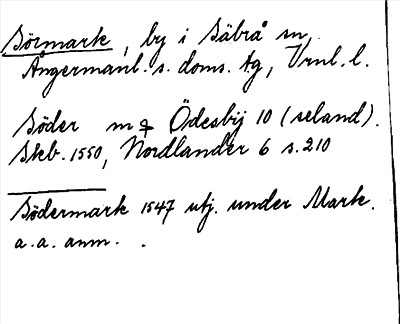 Sörmark, by i Säbrå sn,
Ångermanl. s. doms. tg, Vrnl. l.
Söder m Ödesbÿ 10 (seland).
Skb. 1550, Nordlander 6 s. 210
Södermark 1547 utj. under Mark.
a. a. anm. .